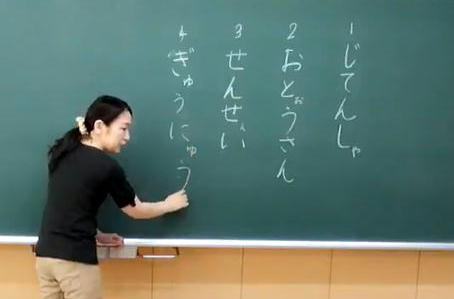 1 じてんしゃ
2 おとうさん
3 せんせい
4 ぎゅうにゅう